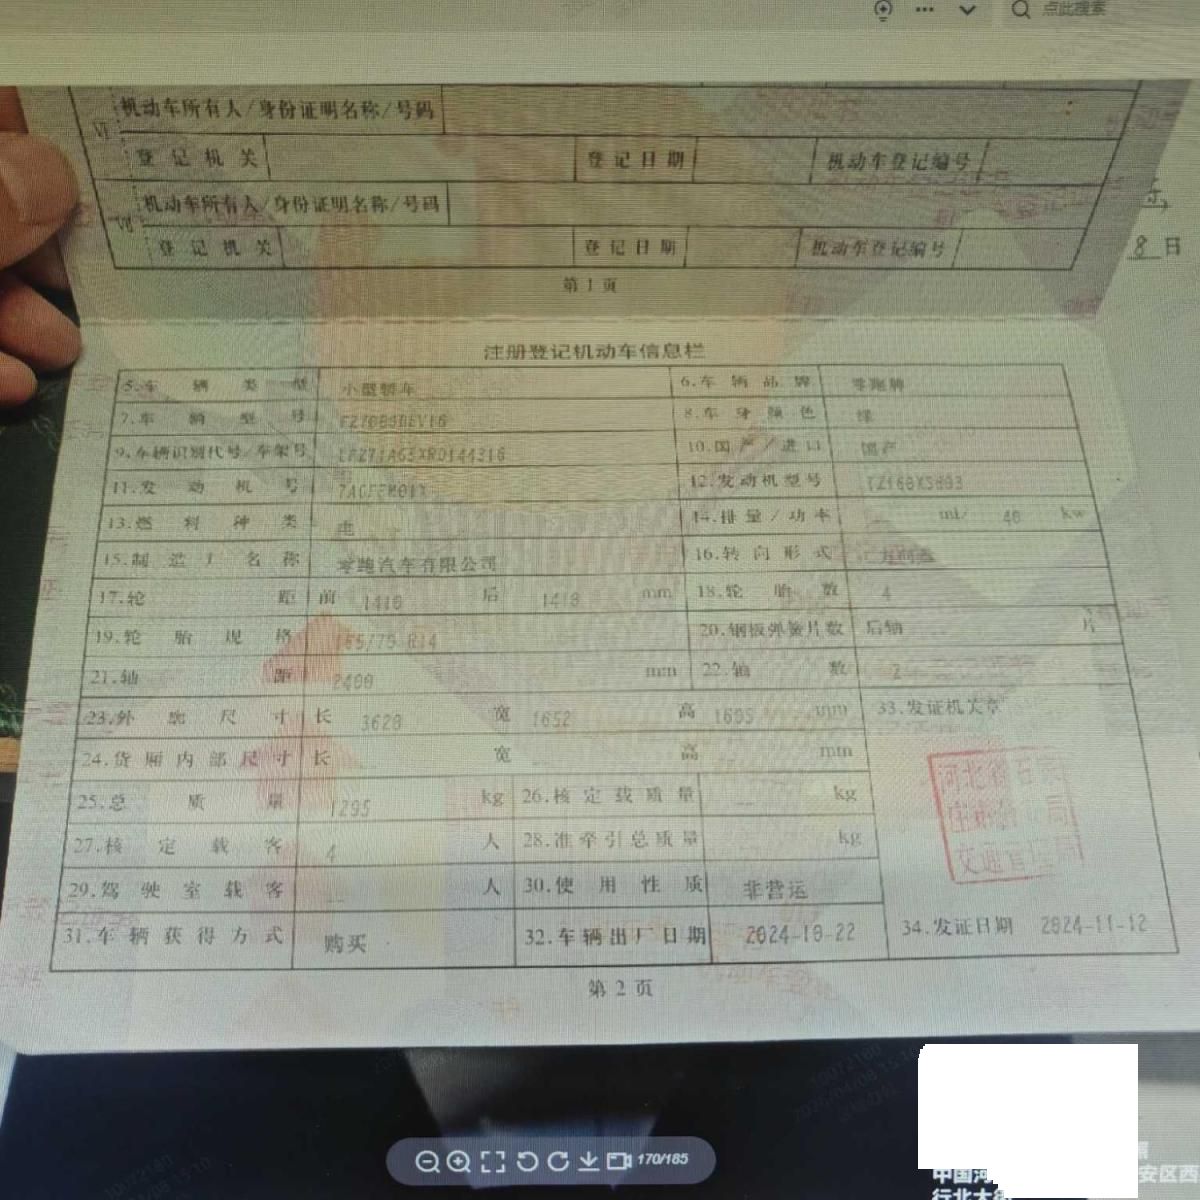 点此搜索
机动车所有人/身份证明名称/号码
VI
登记机关 登记日期 机动车登记编号
机动车所有人/身份证明名称/号码
VII
登记机关 登记日期 机动车登记编号
8日
第1页
注册登记机动车信息栏
5.车辆类型 小型轿车 6.车辆品牌 零跑牌
7.车辆型号 8.车身颜色 绿
9.车辆识别代号/车架号 10.国产/进口 国产
11.发动机号 12.发动机型号
13.燃料种类 电 14.排量/功率 ml/ 40 kw
15.制造厂名称 零跑汽车有限公司 16.转向形式
17.轮距 前 1410 后 1410 mm 18.轮胎数 4
19.轮胎规格 165/70 R14 20.钢板弹簧片数 后轴 片
21.轴距 2400 mm 22.轴数 2
23.外廓尺寸 长 3620 宽 1652 高 1605 mm 33.发证机关章
24.货厢内部尺寸 长 宽 高 mm
25.总质量 1295 kg 26.核定载质量 -- kg
27.核定载客 4 人 28.准牵引总质量 kg
29.驾驶室载客 -- 人 30.使用性质 非营运
31.车辆获得方式 购买 32.车辆出厂日期 2024-10-22 34.发证日期 2024-11-12
河北省石家
庄市公 局
交通管理局
第2页
170/185
中国河
安区西
行北大街